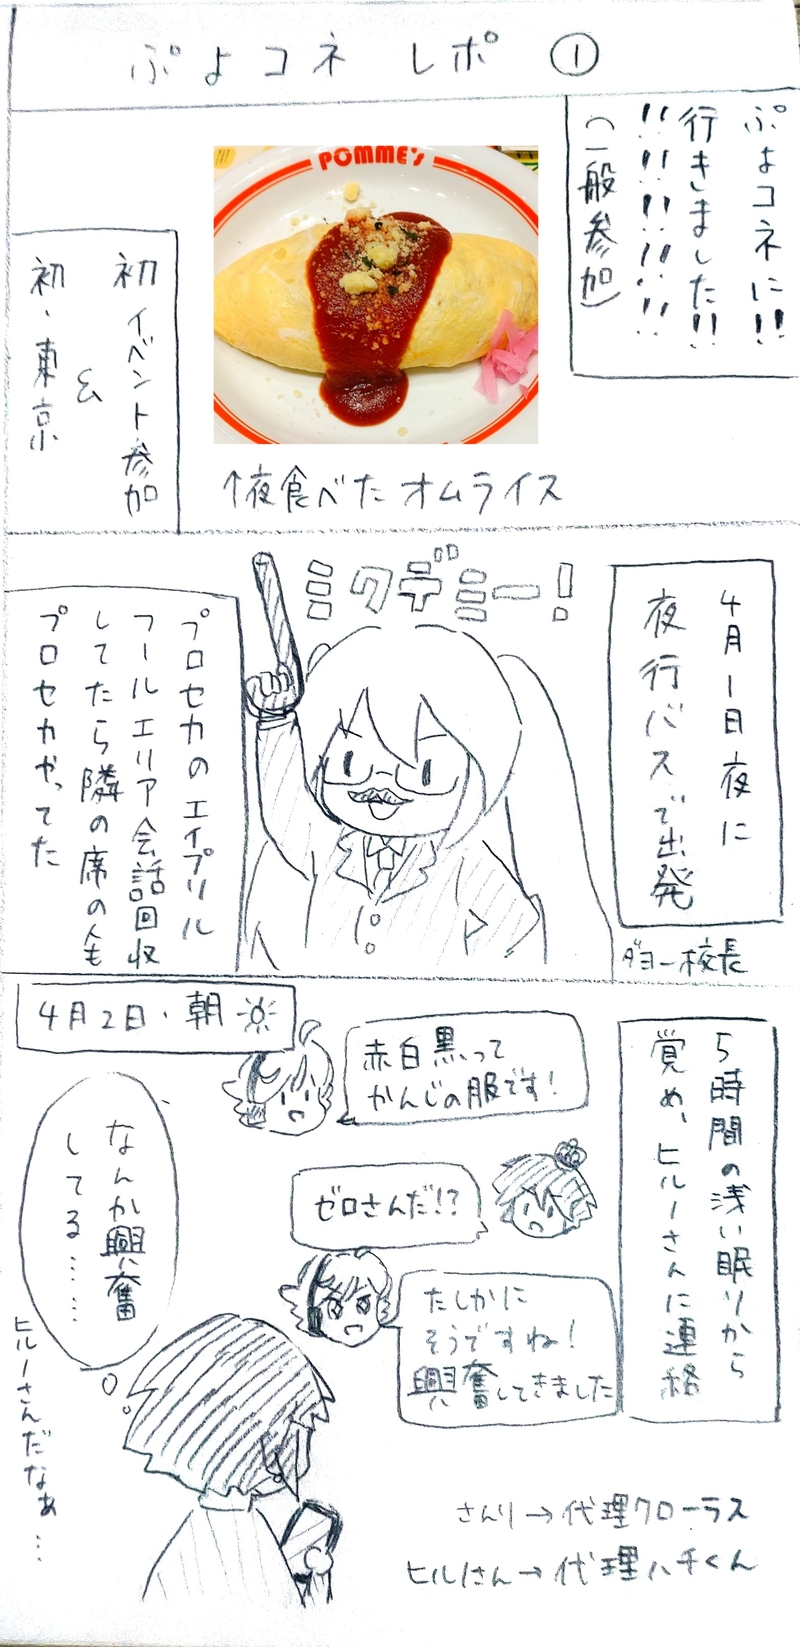 ぷよコネ レポ ①
ぷよコネに!!
行きました!!
!!!!!!!!!!
(一般参加)
POMME'S
初イベント参加
&
初・東京
↑夜食べた オムライス
4月1日夜に
夜行バスで出発
ミクデミー!
ダヨー校長
プロセカのエイプリル
フールエリア会話回収
してたら隣の席の人も
プロセカやってた
4月2日・朝
5時間の浅い眠りから
覚め、ヒルノさんに連絡
赤白黒って
かんじの服です!
ゼロさんだ!?
たしかに
そうですね!
興奮してきました
なんか興奮
してる……
ヒルノさんだなぁ…
さんり→代理クローラス
ヒルノさん→代理ハチくん